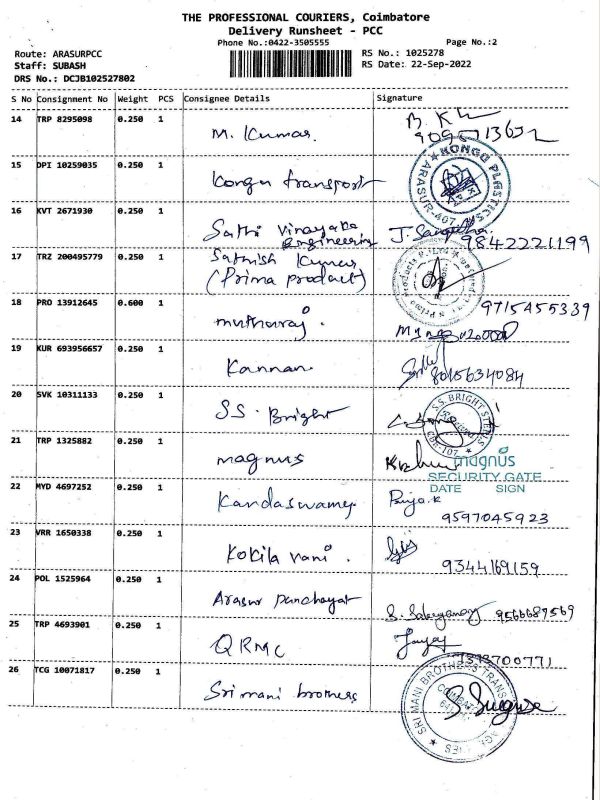 THE PROFESSIONAL COURIERS, Coimbatore
Delivery Runsheet - PCC
Phone No.:0422-3505555 Page No.:2
Route: ARASURPCC RS No.: 1025278
Staff: SUBASH RS Date: 22-Sep-2022
DRS No.: DCJB102527802
S No Consignment No Weight PCS Consignee Details Signature
14 TRP 8295098 0.250 1 M. Kumar.
15 DPI 10259035 0.250 1 Kongu transport
KONGU PLASTICS
ARASUR-407
16 KVT 2671930 0.250 1 Sathi Vinayaga
Engineering
9842221199
17 TRZ 200495779 0.250 1 Sathish Kumar
(Prima product)
18 PRO 13912645 0.600 1 muthuraj.
9715455339
19 KUR 693956657 0.250 1 Kannan.
8015634084
20 SVK 10311133 0.250 1 SS. Bright
S.S. BRIGHT STEELS
CBE-107
21 TRP 1325882 0.250 1 magnus
magnus
SECURITY GATE
DATE SIGN
22 MYD 4697252 0.250 1 Kandaswamy.
Priya.K
9597045923
23 VRR 1650338 0.250 1 Kokila vani.
9344169159
24 POL 1525964 0.250 1 Arasur panchayat
9566689569
25 TRP 4693901 0.250 1 QRMC
26 TCG 10071817 0.250 1 Sri mani brothers
SRI MANI BROTHERS